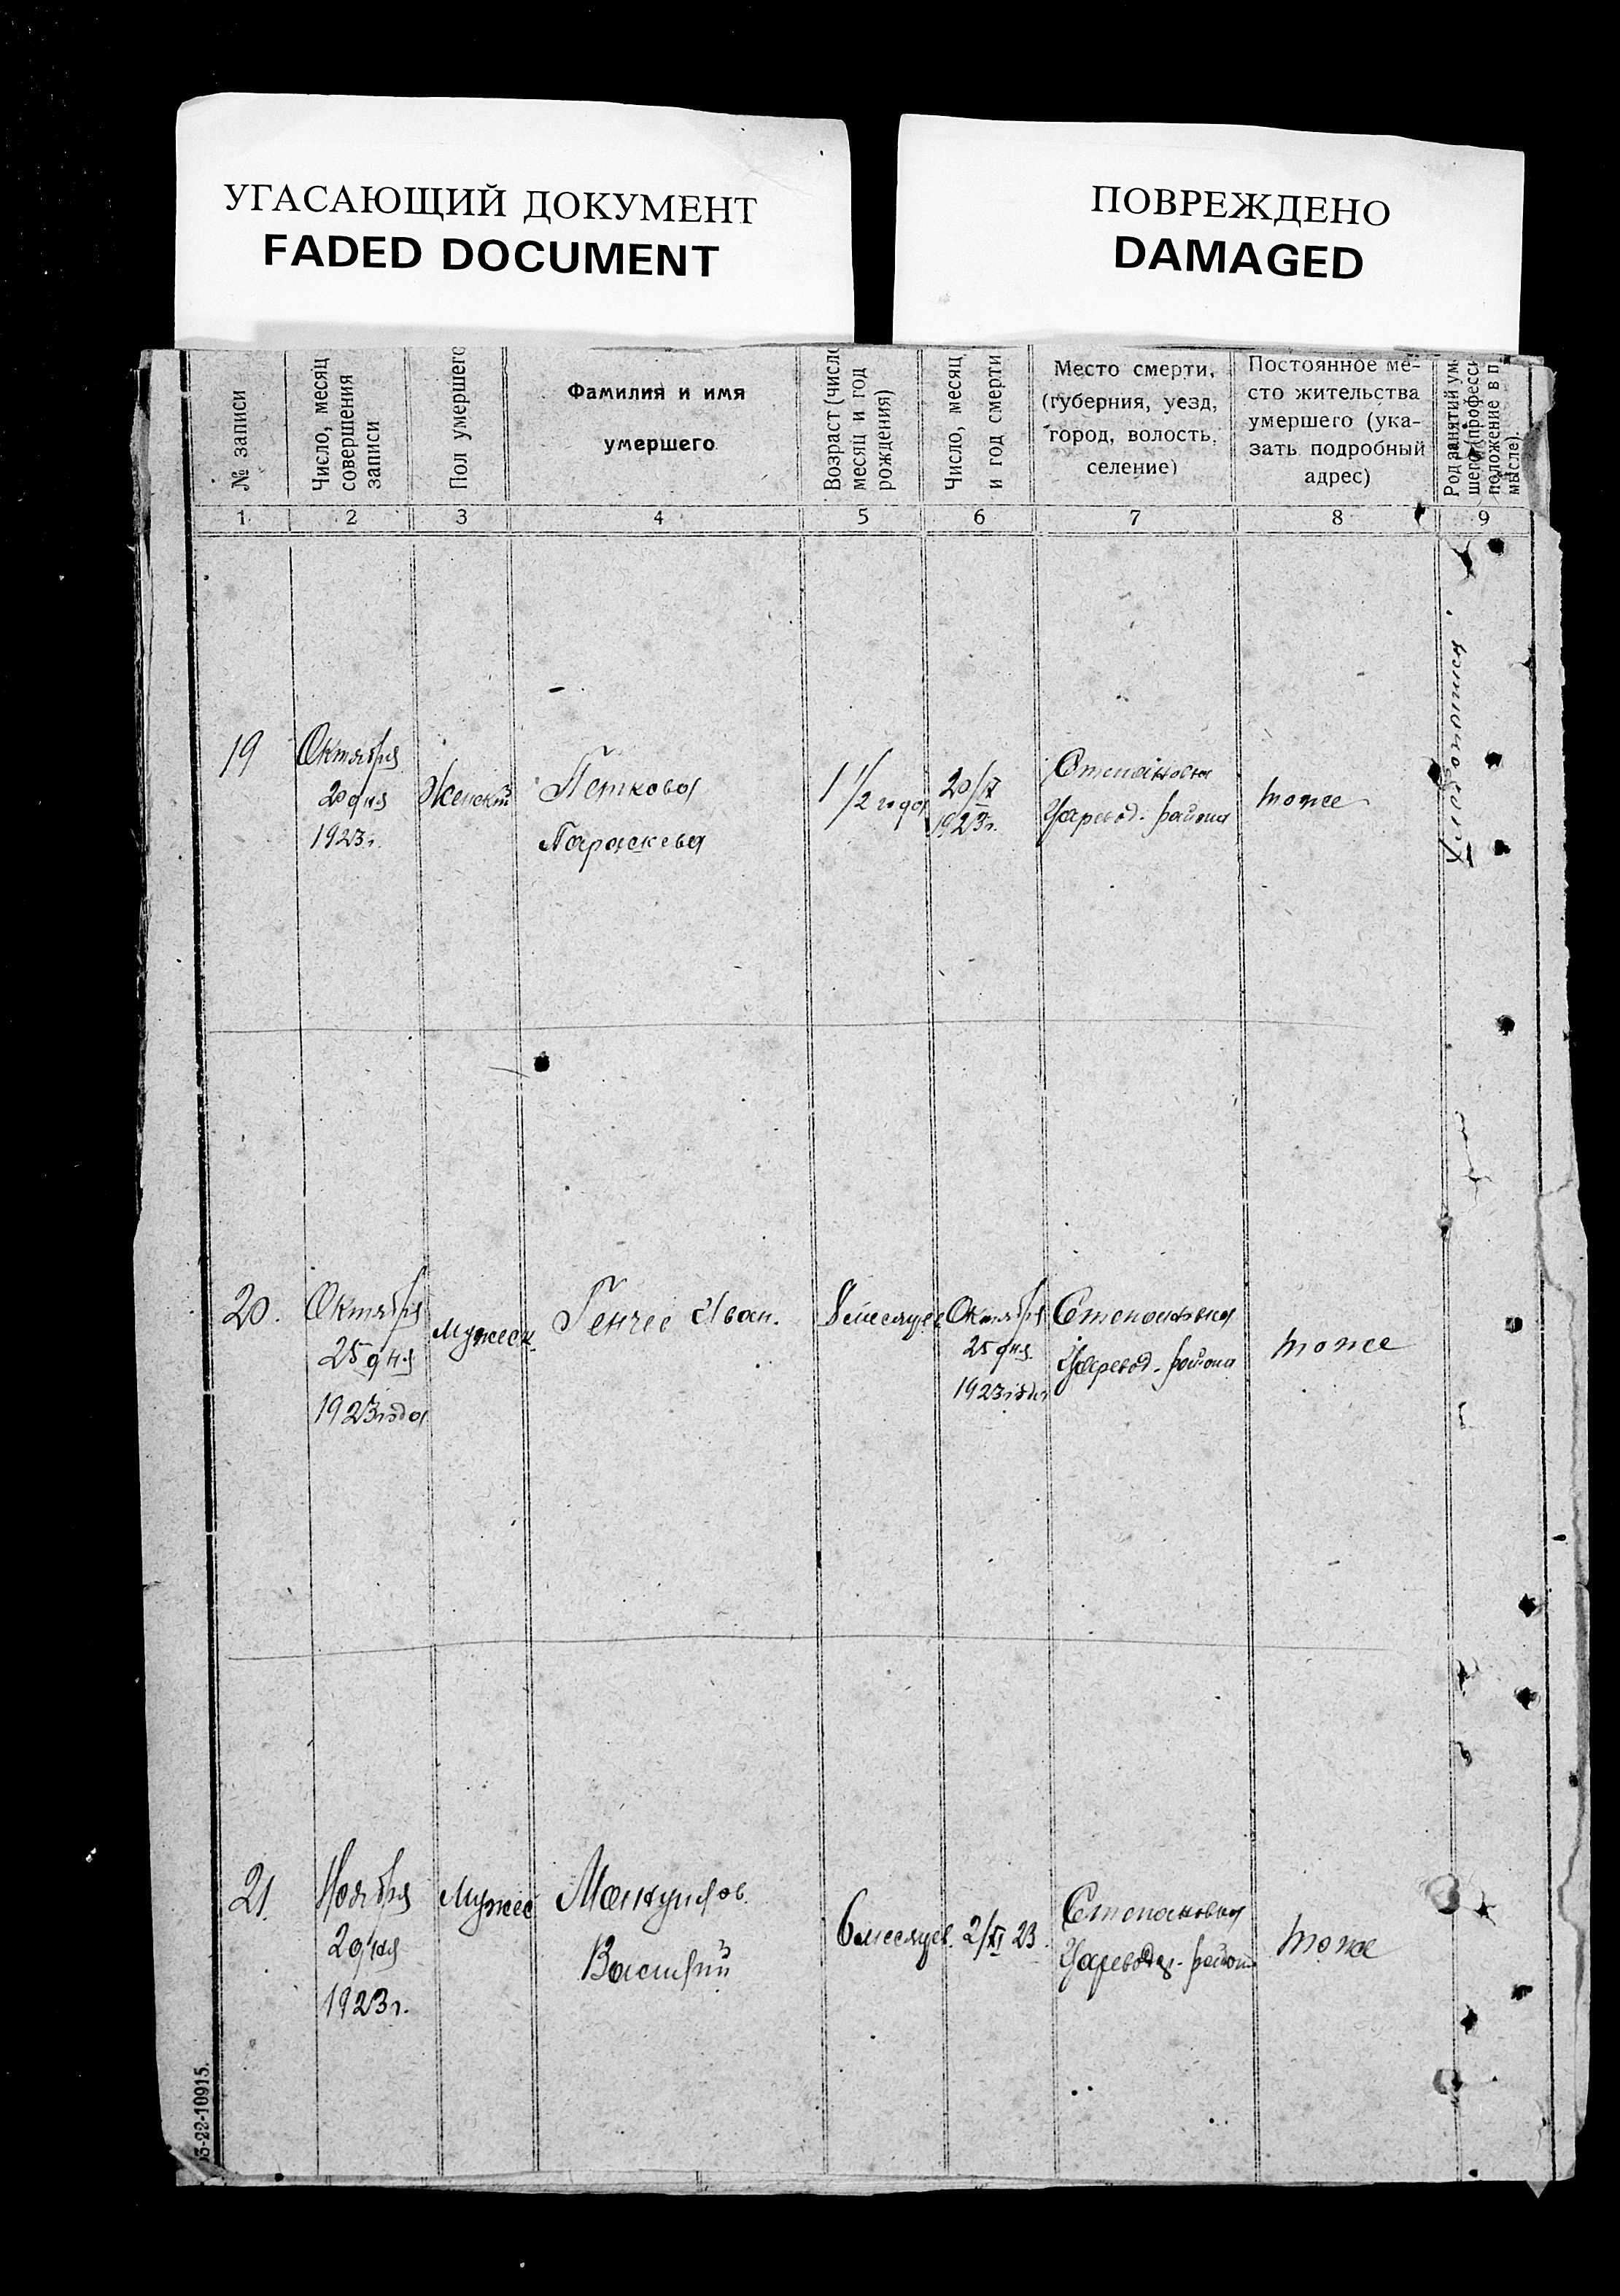 УГАСАЮЩИЙ ДОКУМЕНТ
FADED DOCUMENT
ПОВРЕЖДЕНО
DAMAGED
№ записи
Число, месяц
совершения
записи
Пол умершего
Фамилия и имя
умершего
Возраст (число
месяц и год
рождения)
Число, месяц
и год смерти
Место смерти,
(губерния, уезд,
город, волость,
селение)
Постоянное ме-
сто жительства
умершего (ука-
зать подробный
адрес)
Род занятий ум
шего (професси
положение в п
мысле).
1 2 3 4 5 6 7 8 9
19
Октября
20 дня
1923 г.
Женский
Петкова
Параскева
1 1/2 года
20/X
1923 г.
Степановка
Царевод. района
тоже
Хлебопашец
20.
Октября
25 дня
1923 года
Мужеск.
Генчев Иван.
8 месяцев
Октября
25 дня
1923 года
Степановка
Царевод. района
тоже
21.
Ноября
2 дня
1923 г.
Мужес
Манкушов.
Василий
6 месяцев.
2/XI 23.
Степановка
Царевод. район
тоже
3-22-10915.